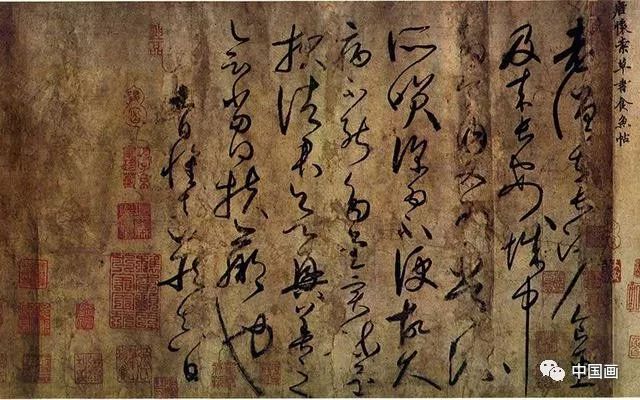 唐懷素草書食魚帖
老僧在長沙食魚
及来長安城中
多食肉又為常流
所笑深為不便故久
病不能多書實疏還
報諸君欲興善之
會當得扶羸也
日懷素藏真白
中国画